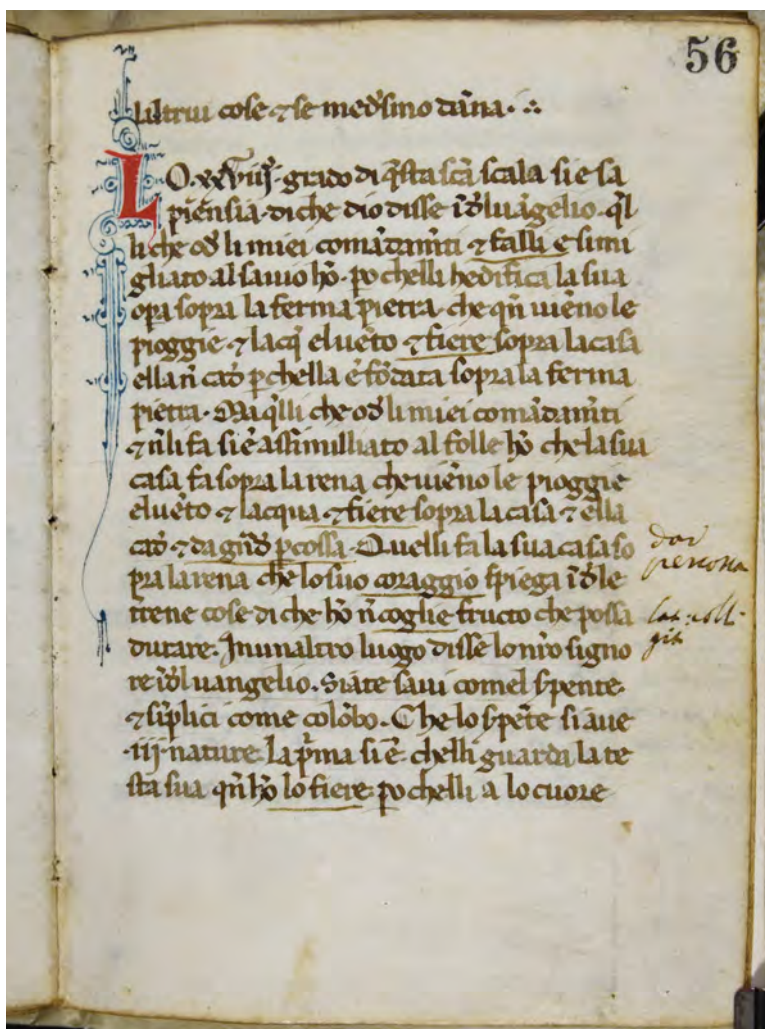 56
laltrui cose ⁊ se med̓simo dāna.
LO .xxviiij. grado di q̄sta sc̄a scala si e sa
piēnsia. di che dio disse ī d̓ luāgelio. q̄l
li che od̓ li miei comādam̄ti ⁊ falli e simi
gliato al sauio hō. po chelli hedifica la sua
opa sopra la ferma pietra. che qn̄ uiēno le
pioggie ⁊ lacq̄ el uēto ⁊ fiere sopra la casa
ella n̄ cad̓ p chella e fōdata sopra la ferma
pietra. Ma q̄lli che od̓ li miei comādam̄ti
⁊ n̄ li fa si e assimilliato al folle hō che la sua
casa fa sopra la rena che uiēno le pioggie
el uēto ⁊ lacqua ⁊ fiere sopra la casa ⁊ ella
cad̓ ⁊ da gn̄d̓ pcossa. Quelli fa la sua casa so
pra la rena che lo suo coraggio spiega ī d̓ le
trene cose di che hō n̄ coglie fructo che possa
durare. Inunaltro luogo disse lo nr̄o signo
re ī d̓l uangelio. Siate saui comel spente.
⁊ sīplici come colōbo. Che lo spēte si aue
.iij. nature. la p̄ma si e. chelli guarda la te
sta sua qn̄ hō lo fiere. po chelli a lo cuore
dar
percossa
lat. coll-
git